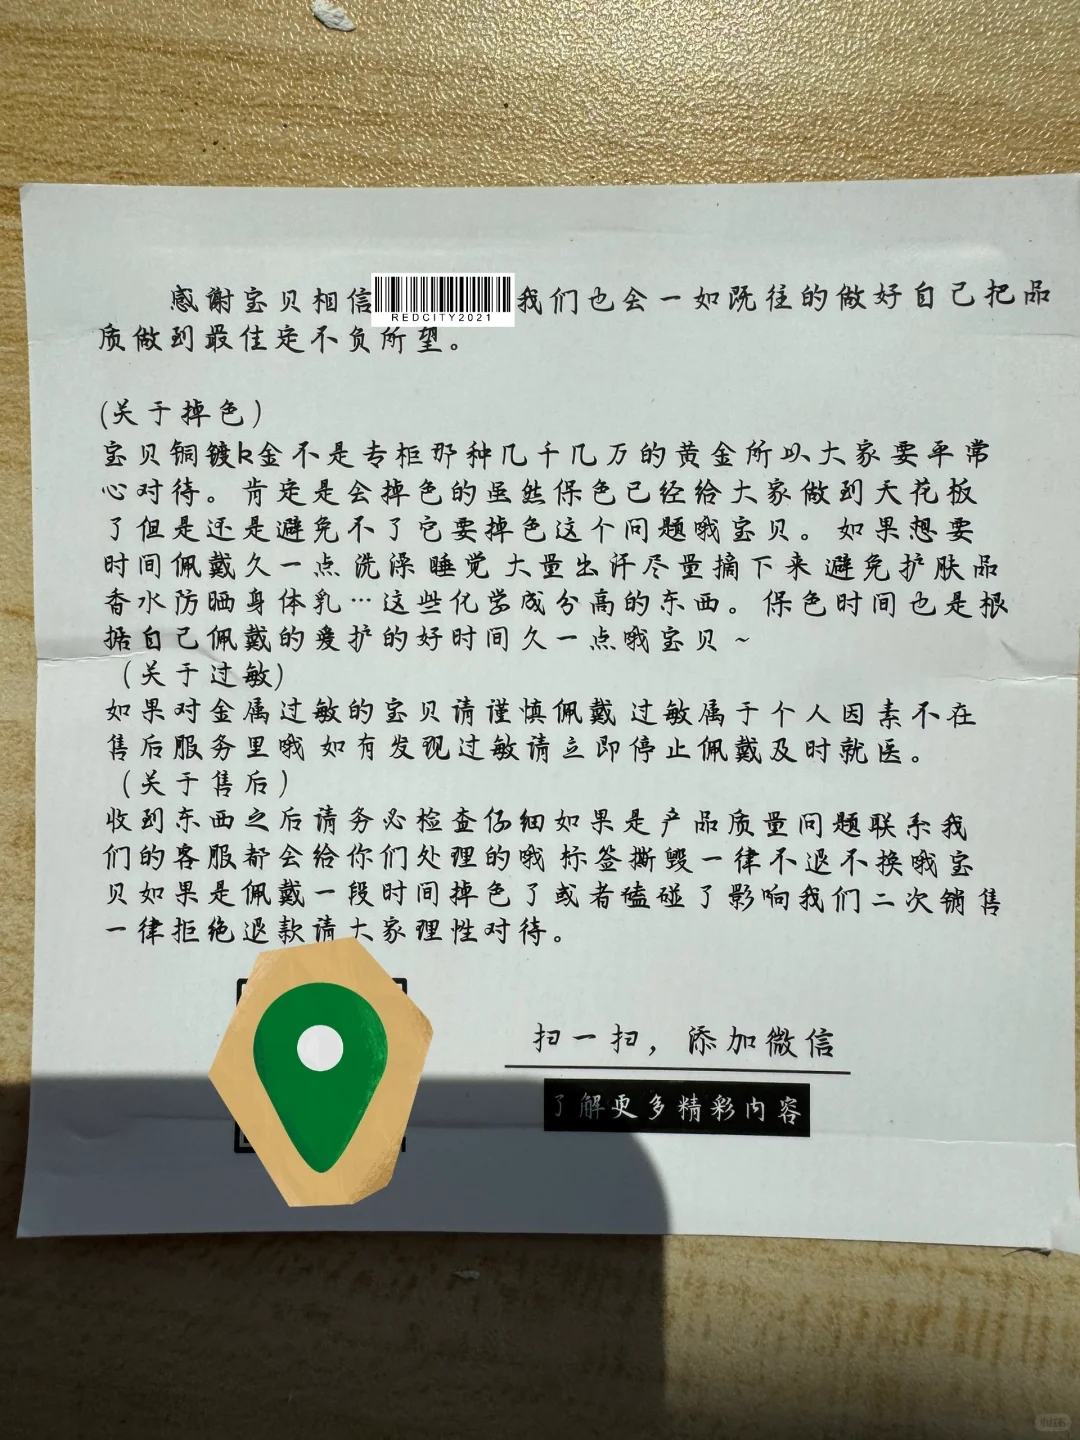 感谢宝贝相信 REDCITY2021 我们也会一如既往的做好自己把品
质做到最佳定不负所望。
(关于掉色)
宝贝铜镀k金不是专柜那种几千几万的黄金所以大家要平常
心对待。肯定是会掉色的虽然保色已经给大家做到天花板
了但是还是避免不了它要掉色这个问题哦宝贝。如果想要
时间佩戴久一点 洗澡 睡觉 大量出汗尽量摘下来 避免护肤品
香水防晒身体乳…这些化学成分高的东西。保色时间也是根
据自己佩戴的爱护的好时间久一点哦宝贝~
(关于过敏)
如果对金属过敏的宝贝请谨慎佩戴 过敏属于个人因素不在
售后服务里哦 如有发现过敏请立即停止佩戴及时就医。
(关于售后)
收到东西之后请务必检查仔细如果是产品质量问题联系我
们的客服都会给你们处理的哦 标签撕毁一律不退不换哦宝
贝如果是佩戴一段时间掉色了或者磕碰了影响我们二次销售
一律拒绝退款请大家理性对待。
扫一扫，添加微信
了解更多精彩内容